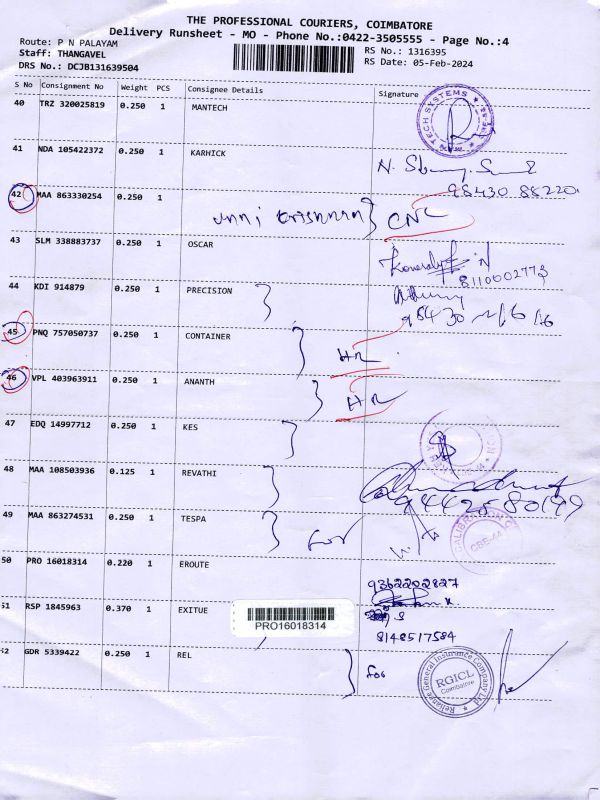 THE PROFESSIONAL COURIERS, COIMBATORE
Delivery Runsheet - MO - Phone No.:0422-3505555 - Page No.:4
Route: P N PALAYAM
Staff: THANGAVEL
DRS No.: DCJB131639504
RS No.: 1316395
RS Date: 05-Feb-2024
S No Consignment No Weight PCS Consignee Details Signature
40 TRZ 320025819 0.250 1 MANTECH
TECH SYSTEMS
41 NDA 105422372 0.250 1 KARHICK
98430 88220
42 MAA 863330254 0.250 1
unni Krishnan} CNL
43 SLM 338883737 0.250 1 OSCAR
8110002773
44 KDI 914879 0.250 1 PRECISION
45 PNQ 757050737 0.250 1 CONTAINER
HR
46 VPL 403963911 0.250 1 ANANTH
HR
47 EDQ 14997712 0.250 1 KES
48 MAA 108503936 0.125 1 REVATHI
9442580149
49 MAA 863274531 0.250 1 TESPA
for
CBE-44
50 PRO 16018314 0.220 1 EROUTE
9362202827
51 RSP 1845963 0.370 1 EXITUE
PRO16018314
8148517584
52 GDR 5339422 0.250 1 REL
for
Reliance General Insurance Company Ltd
RGICL
Coimbatore